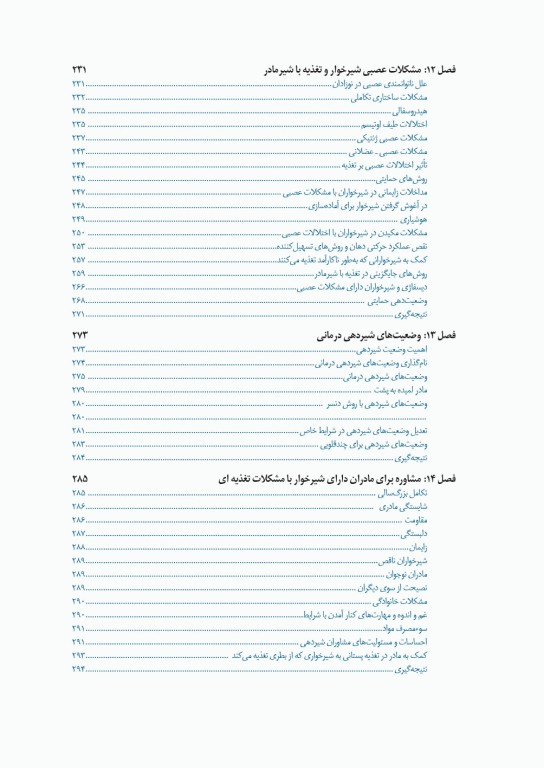 فصل ۱۲: مشکلات عصبی شیرخوار و تغذیه با شیرمادر ۲۳۱
علل ناتوانمندی عصبی در نوزادان ۲۳۱
مشکلات ساختاری تکاملی ۲۳۲
هیدروسفالی ۲۳۵
اختلالات طیف اوتیسم ۲۳۵
مشکلات عصبی ژنتیکی ۲۳۷
مشکلات عصبی ـ عضلانی ۲۴۳
تأثیر اختلالات عصبی بر تغذیه ۲۴۴
روش‌های حمایتی ۲۴۵
مداخلات زایمانی در شیرخواران با مشکلات عصبی ۲۴۷
در آغوش گرفتن شیرخوار برای آماده‌سازی ۲۴۸
هوشیاری ۲۴۹
مشکلات مکیدن در شیرخواران با اختلالات عصبی ۲۵۰
نقص عملکرد حرکتی دهان و روش‌های تسهیل‌کننده ۲۵۳
کمک به شیرخوارانی که به‌طور ناکارآمد تغذیه می‌کنند ۲۵۷
روش‌های جایگزینی در تغذیه با شیرمادر ۲۵۹
دیسفاژی و شیرخواران دارای مشکلات عصبی ۲۶۶
وضعیت‌دهی حمایتی ۲۶۸
نتیجه‌گیری ۲۷۱
فصل ۱۳: وضعیت‌های شیردهی درمانی ۲۷۳
اهمیت وضعیت شیردهی ۲۷۳
نام‌گذاری وضعیت‌های شیردهی درمانی ۲۷۴
وضعیت‌های شیردهی درمانی ۲۷۵
مادر لمیده به پشت ۲۷۹
وضعیت‌های شیردهی با روش دنسر ۲۸۰
۲۸۰
تعدیل وضعیت‌های شیردهی در شرایط خاص ۲۸۱
وضعیت‌های شیردهی برای چندقلویی ۲۸۳
نتیجه‌گیری ۲۸۴
فصل ۱۴: مشاوره برای مادران دارای شیرخوار با مشکلات تغذیه ای ۲۸۵
تکامل بزرگ‌سالی ۲۸۵
شایستگی مادری ۲۸۶
مقاومت ۲۸۶
دلبستگی ۲۸۷
زایمان ۲۸۸
شیرخواران ناقص ۲۸۹
مادران نوجوان ۲۸۹
نصیحت از سوی دیگران ۲۸۹
مشکلات خانوادگی ۲۹۰
غم و اندوه و مهارت‌های کنار آمدن با شرایط ۲۹۰
سوءمصرف مواد ۲۹۱
احساسات و مسئولیت‌های مشاوران شیردهی ۲۹۱
کمک به مادر در تغذیه پستانی به شیرخواری که از بطری تغذیه می‌کند ۲۹۳
نتیجه‌گیری ۲۹۴